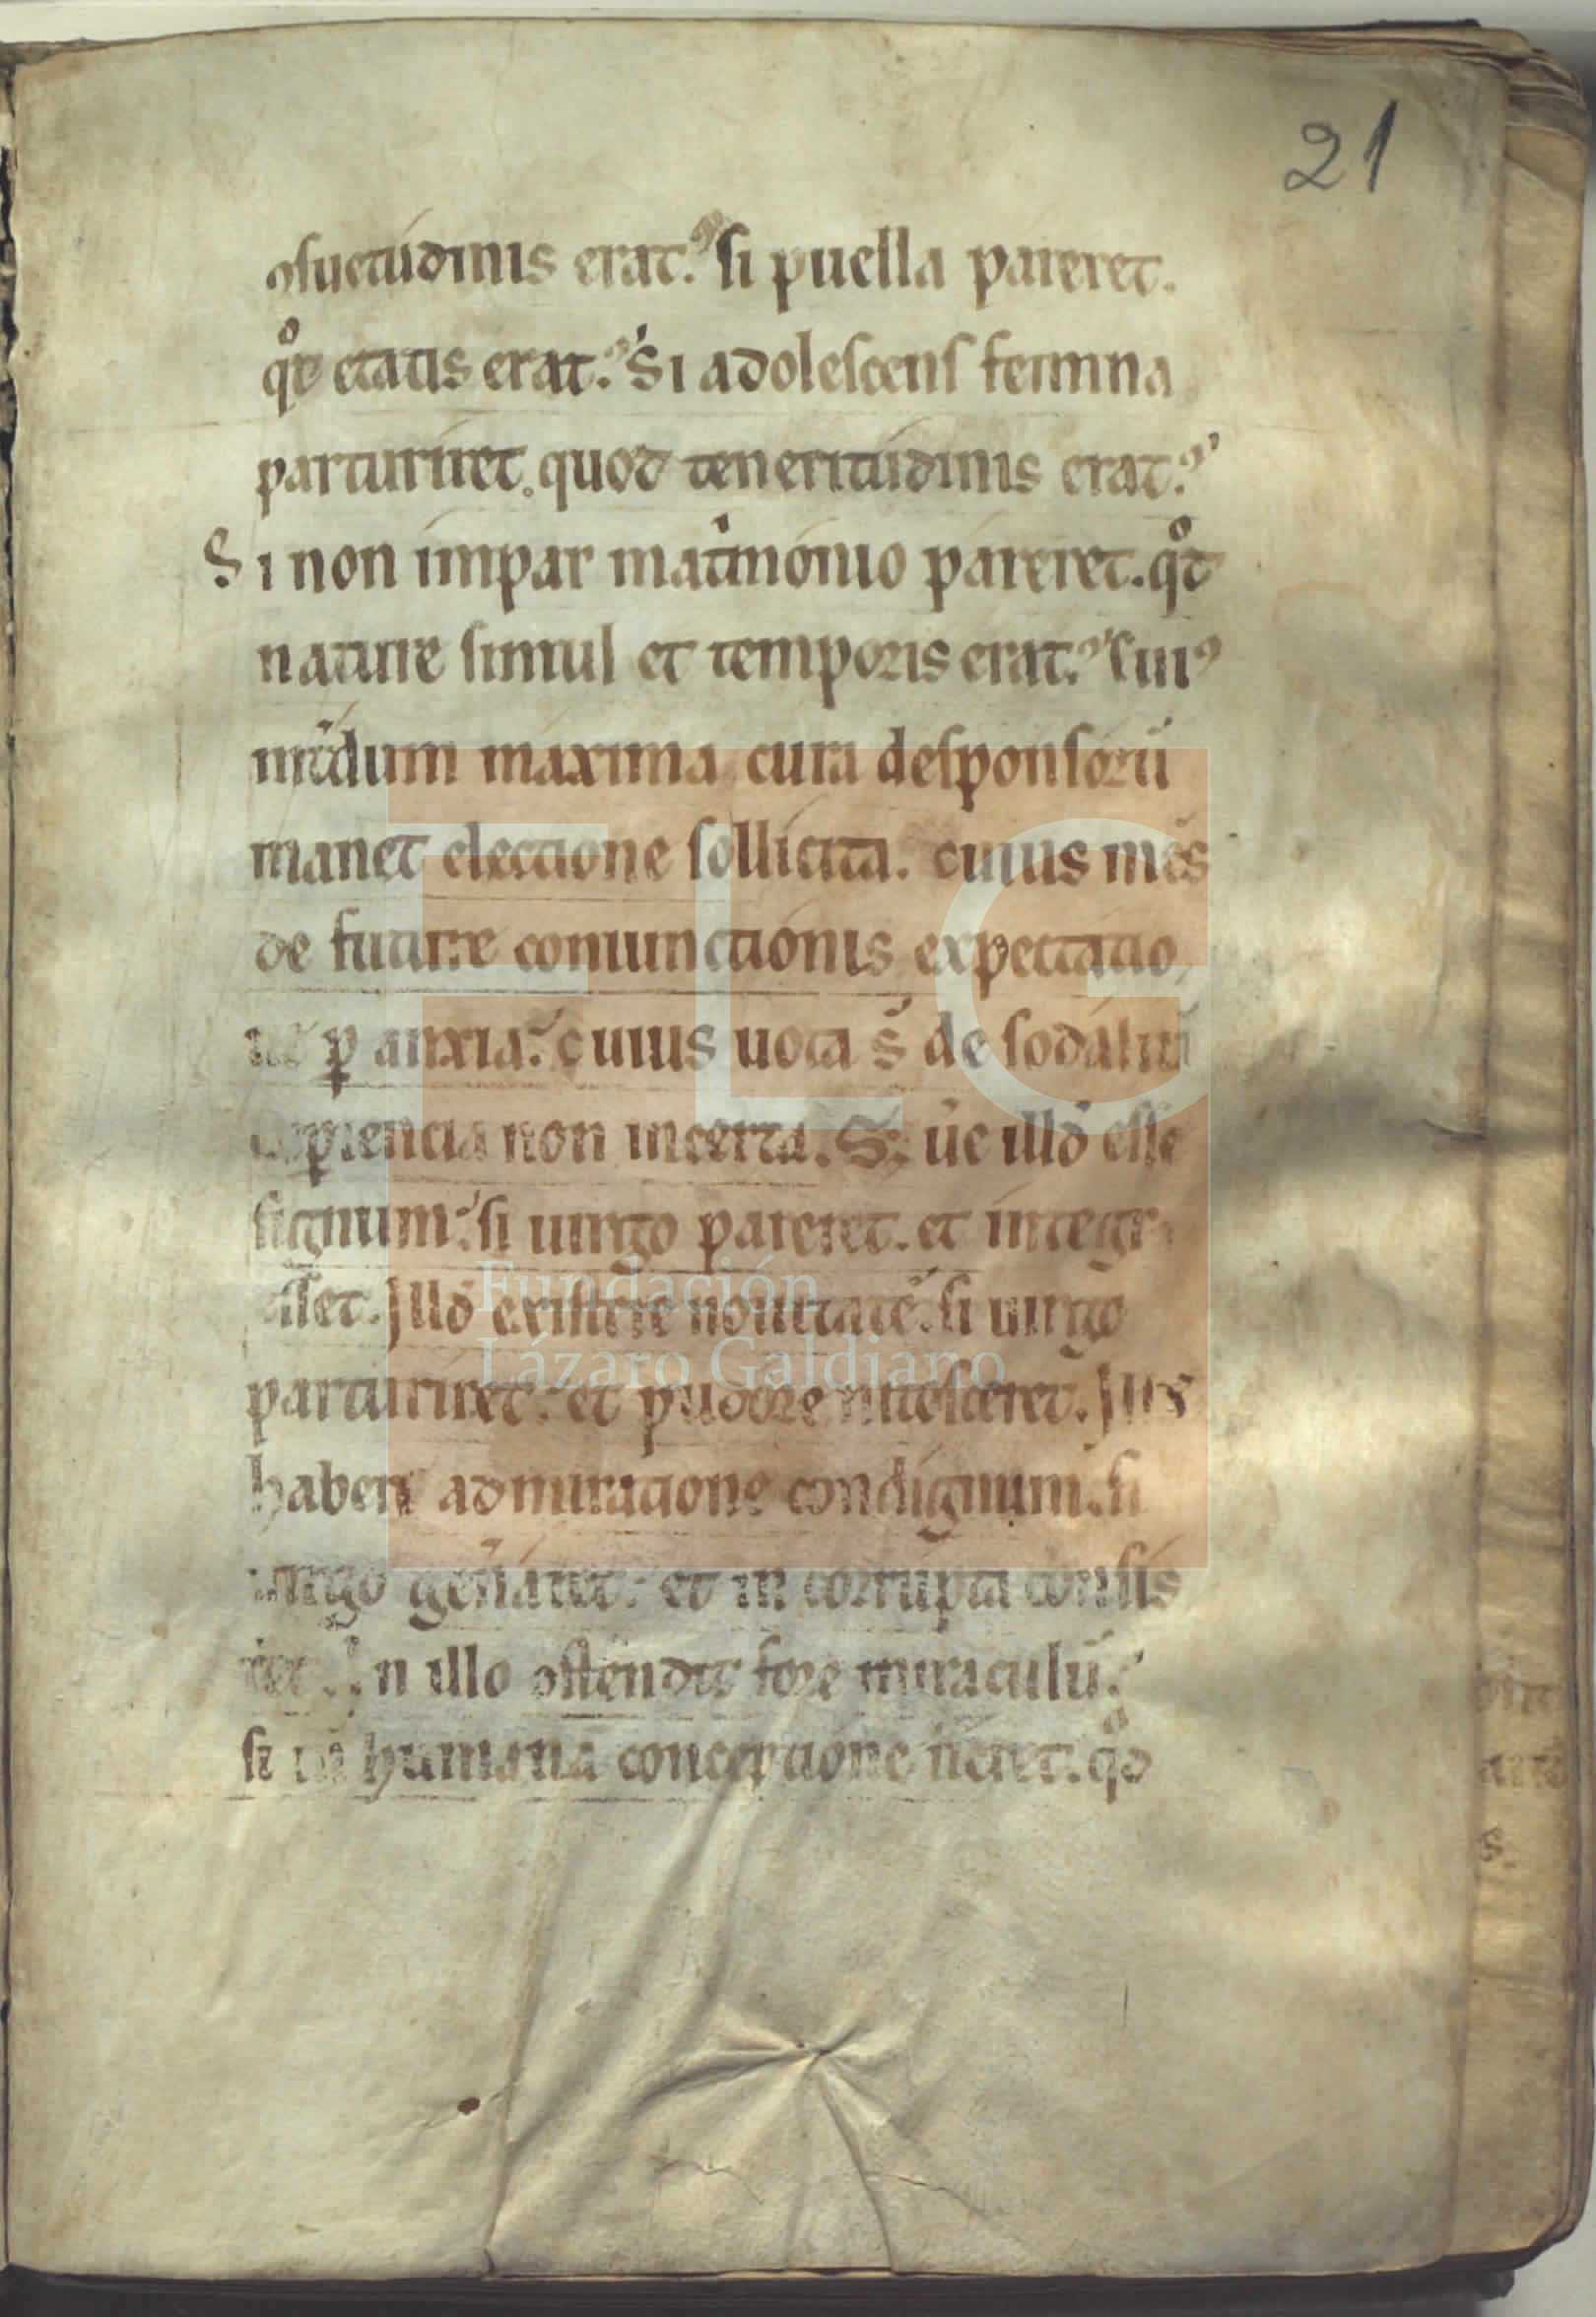 21
ꝯsuetudinis erat. si puella pareret.
qͦd etatis erat. Si adolescens femina
parturiret. quod teneritudinis erat.
Si non impar mat͛monio pareret. qͦd
nature simul et temporis erat. cuiꝰ
maxima cura desponsorū
manet electione sollicita. cuius m̄s
de future coniunctionis expectatio
ꝑ anxia. cuius uota s̄ de sodaliū
non incerta. S; ūe illđ esse
signum. si uirgo pareret. et integra
Illđ existere nouitatē. si uirgo
parturiret. et pudore nitesceret. Illđ
habere admiratione condignum. si
uirgo gen̄aret. et in corrupta consis
ret. In illo ostendit fore miraculū.
si in humana conceptione fieret. qđ
FLG
Fundación
Lázaro Galdiano